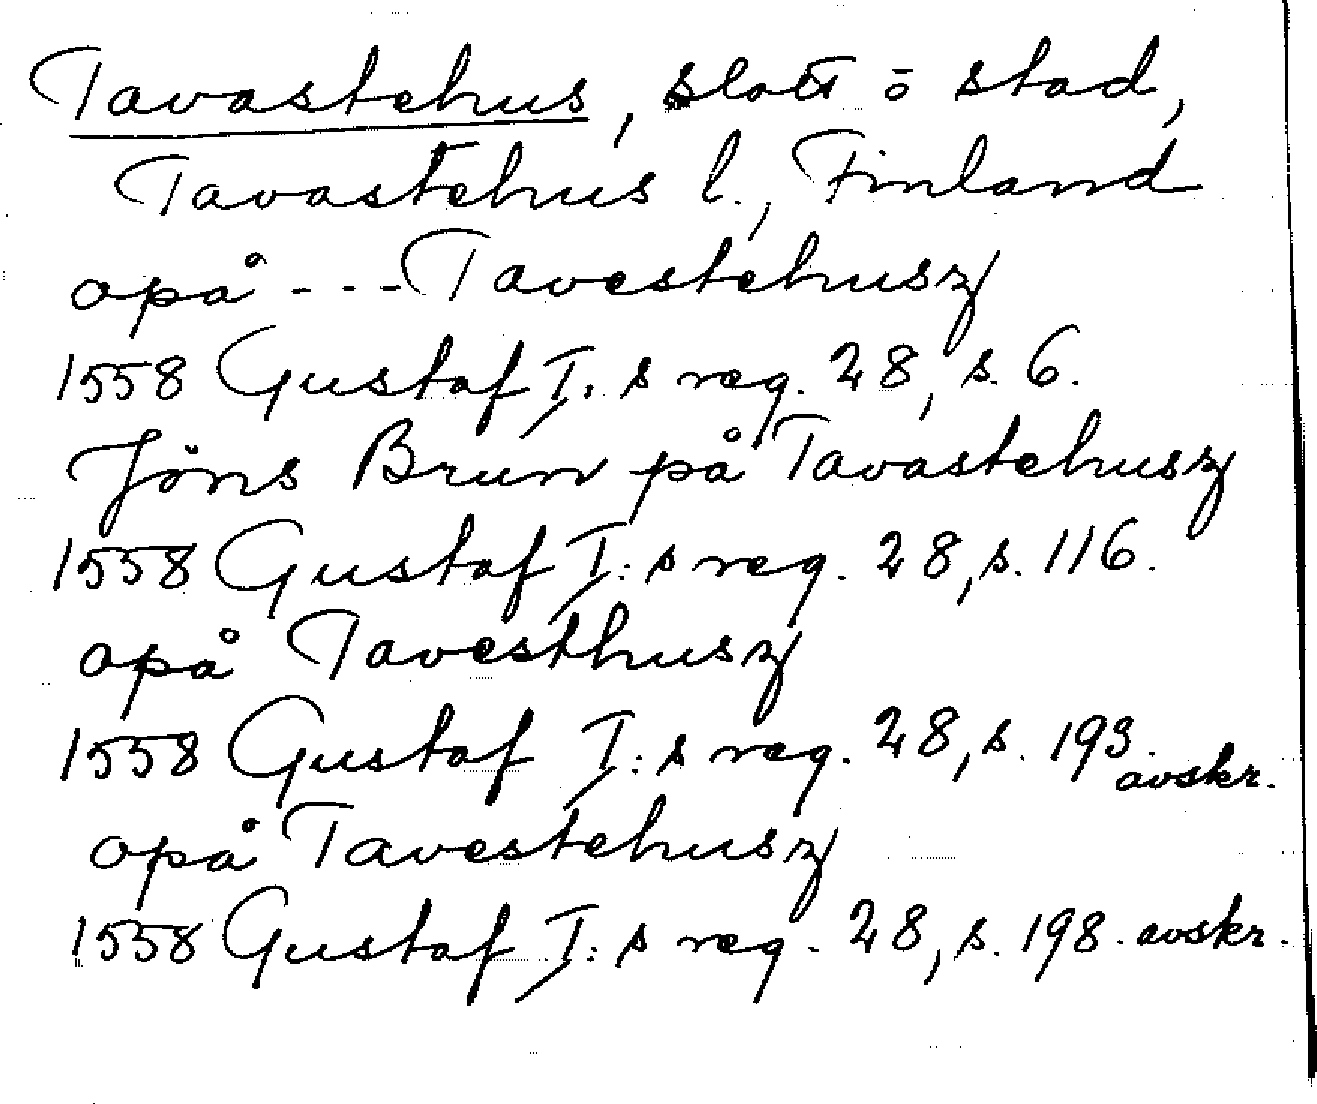 Tavastehus, slott o stad,
Tavastehus l., Finland
opå --- Tavestehusz
1558 Gustaf I:s reg. 28, s. 6.
Jöns Brun på Tavastehusz
1558 Gustaf I:s reg. 28, s. 116.
opå Tavesthusz
1558 Gustaf I:s reg. 28, s. 193. avskr.
opå Tavestehusz
1558 Gustaf I:s reg. 28, s. 198. avskr.